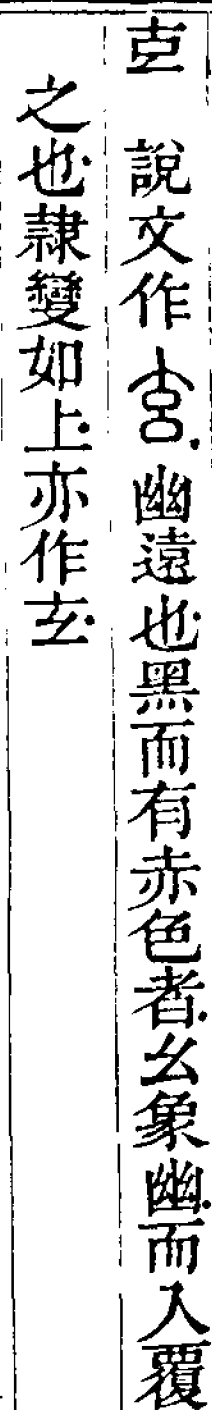 說文作 幽遠也黑而有赤色者幺象幽而入覆
之也隸變如上亦作玄